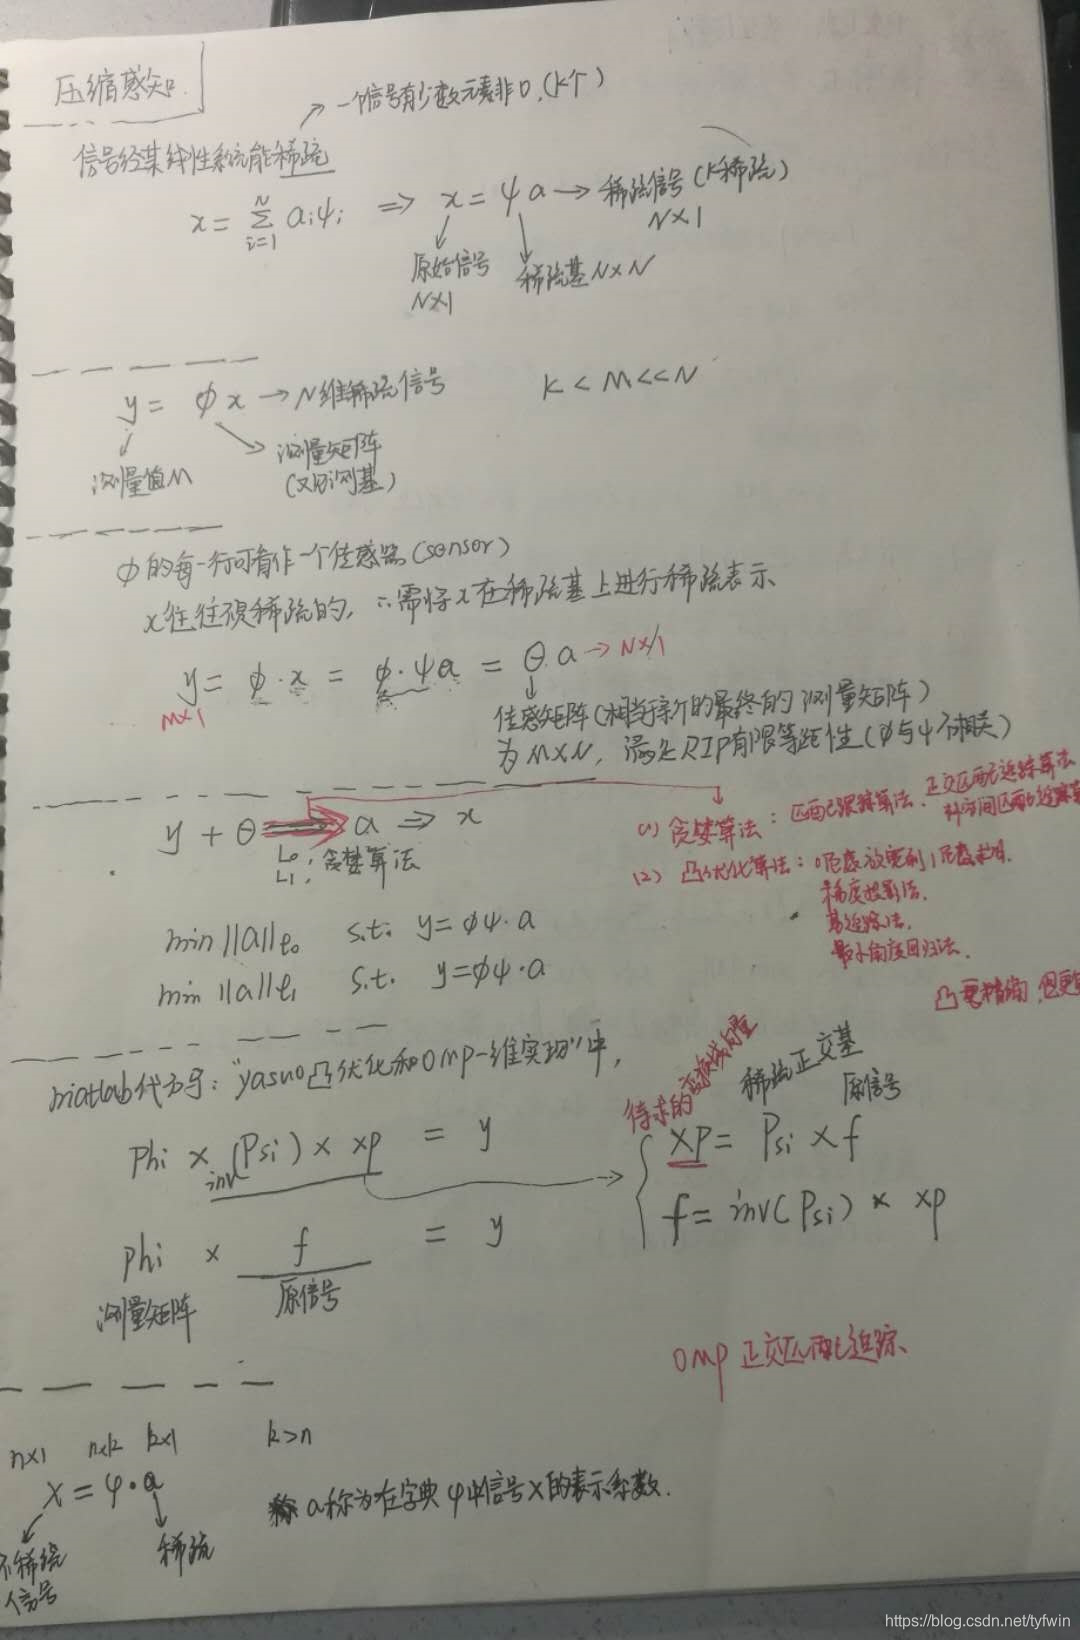 压缩感知.
→ 一个信号有少数元素非0.(K个)
信号经某线性系统能稀疏
x = Σ_{i=1}^{N} aᵢψᵢ ⇒ x = ψ a → 稀疏信号(K稀疏)
N×1
原始信号
稀疏基N×N
N×1
y = ϕ x → N维稀疏信号 K < M << N
测量值M
测量矩阵
(又叫观测基)
ϕ的每一行可看作一个传感器(sensor)
x往往 稀疏的, ∴需将x在稀疏基上进行稀疏表示
y = ϕ·x = ϕ·ψa = Θ.a → N×1
M×1
传感矩阵(相当于新的最终的测量矩阵)
为M×N, 满足RIP有限等距性(ϕ与ψ不相关)
y + Θ ⇒ a ⇒ x
L₀: 贪婪算法
L₁:
(1) 贪婪算法: 匹配跟踪算法、正交匹配追踪算法
补空间匹配追踪算
(2) 凸优化算法: 0范数放宽到1范数求解.
梯度投影法.
基追踪法.
最小角度回归法.
凸更精确,但更
min ||a||ℓ₀ s.t. y=ϕψ·a
min ||a||ℓ₁ s.t. y=ϕψ·a
matlab代码: "yasuo凸优化和OMP一维实现"中,
Phi × inv(Psi) × xp = y
待求的变换域向量
稀疏正交基
原信号
xp = Psi × f
f = inv(Psi) × xp
phi × f = y
测量矩阵
原信号
OMP 正交匹配追踪.
n×1 n×k k×1 k>n
x = φ·a
a称为在字典φ中信号x的表示系数.
不稀疏
信号
稀疏
https://blog.csdn.net/tyfwin